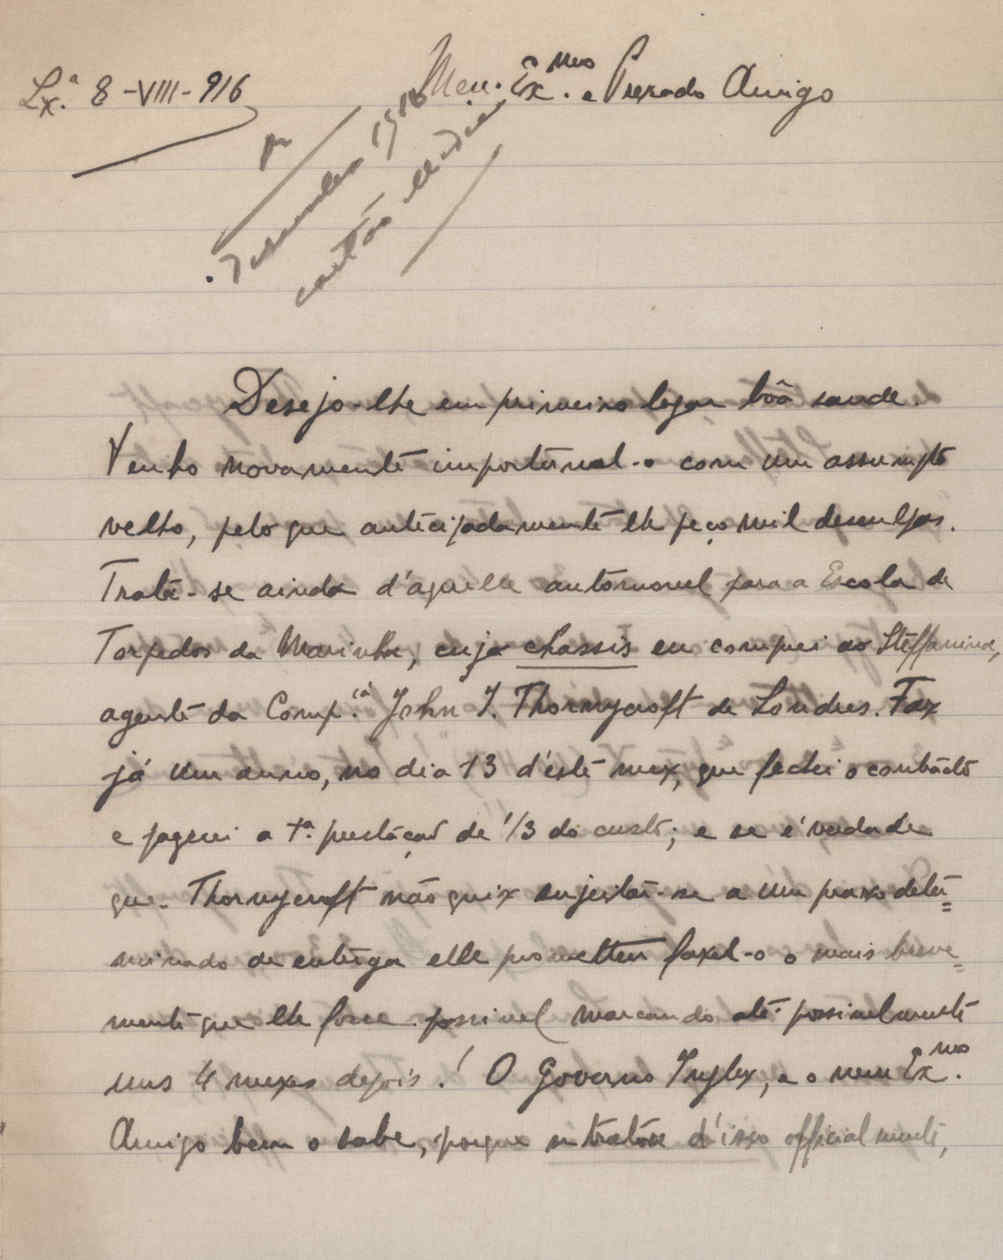 Lx.ª 8-VIII-916
Meu Ex.mo e Prezado Amigo
1916
cartão
Desejo-lhe em primeiro logar bôa saude.
Venho novamente importunal-o com um assumpto
velho, pelo que antecipadamente lhe peço mil desculpas.
Trata-se ainda d'aquelle automovel para a Escola de
Torpedos da Marinha, cujo chassis eu comprei ao Steffanina,
agente da Comp.ª John I. Thornycroft de Londres. Faz
já um anno, no dia 13 d'este mez, que fechei o contracto
e paguei a 1ª. prestação de 1/3 do custo; e se é verdade
que Thornycroft não quiz sujeitar-se a um prazo deter=
minado de entrega elle prometteu fazel-o o mais breve=
mente que lhe fosse possivel marcando até possivelmente
uns 4 mezes depois! O Governo Inglez, e o meu Ex.mo
Amigo bem o sabe, porque d'isso officialmente,